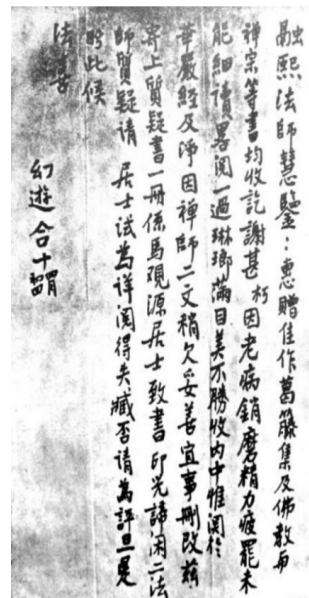 融熙法師慧鑒：惠贈佳作葛籐集及佛教與
禅宗等書均收訖謝甚朽因老病銷磨精力疲罷未
能細讀畧阅一過琳瑯滿目美不勝收内中惟阅於
華嚴經及淨因禅師二文稍欠妥善宜事刪改茲
寄上質疑書一冊係馬觀源居士致書印光諦闲二法
師質疑请居士試為详阅得失臧否请為評旦是
盼此候
法喜
幻遊合十